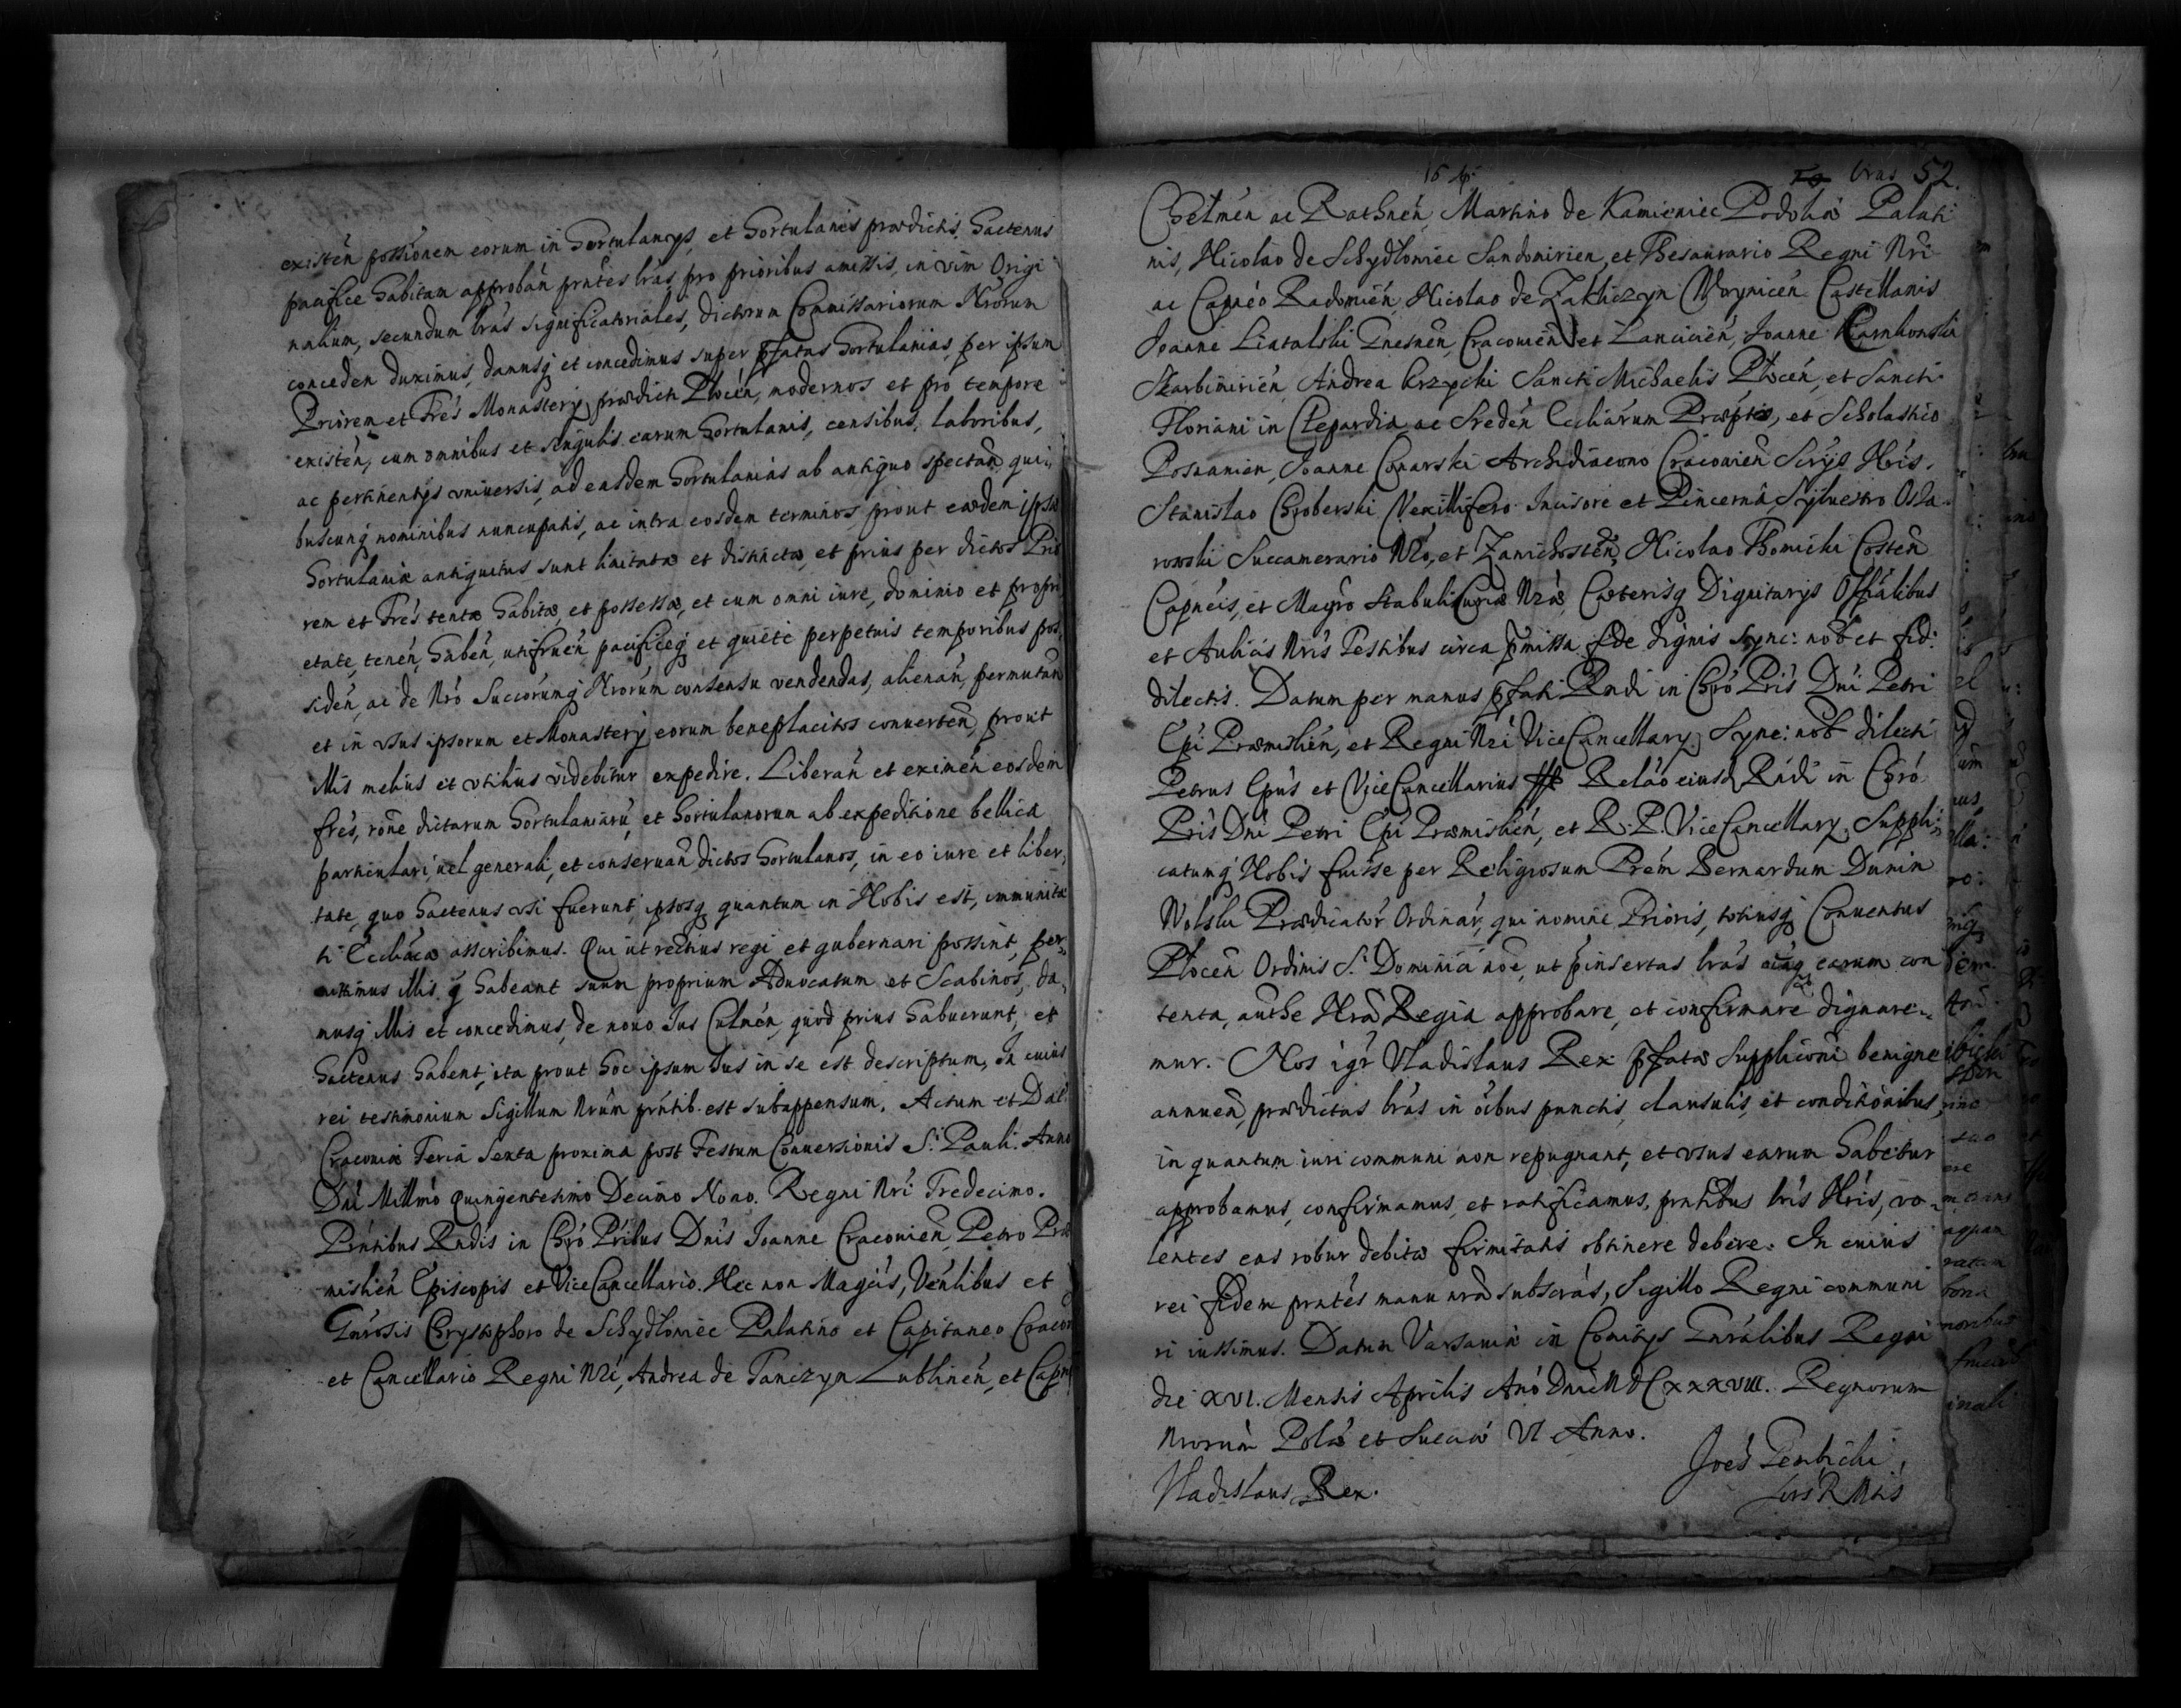 existeń possionem eorum in Hortulanys, et Hortulanis prædictis hactenus
pacifice habitam approbań prńtes lrás pro prioribus amissis, in vim Origi
nalium, secundum lrás significatoriales, dictorum Commissariorum Nrorum
conceden duximus, damusq et concedimus super pfatas Hortulanias, per ipsum
Priorem et Frés Monastery prædicti Płoceń, modernos et pro tempore
existeń, cum omnibus et singulis earum Hortulanis, censibus, laboribus,
ac pertinentys vniuersis, ad easdem Hortulanias ab antiquo spectań, qui
buscunq nominibus nuncupatis, ac intra eosdem terminos prout eædem ipsæ
Hortulaniæ antiquitus sunt limitatæ et distinctæ, et prius per dictos Prio
rem et Frés tentæ habitæ, et possessæ, et cum omni iure, dominio et propri
etate, teneń, habeń, utifrueń pacificeq et quiete perpetuis temporibus pos
sideń, ac de Nró Succorumq Nrorum consensu vendendas, alienań, permutań
et in vsus ipsorum et Monastery eorum beneplacitos conuerteń, prout
illis melius et vtilius videbitur expedire. Liberań et eximeń eosdem
frés, rone dictarum Hortulaniarú, et Hortulanorum ab expeditione bellica
particulari, uel generali, et conseruań dictos Hortulanos, in eo iure et liber
tate, quo hactenus vsi fuerunt, ipsosq quantum in Nobis est, immunita
ti Eccliácæ asscribimus. Qui ut rectius regi et gubernari possint, per
mittimus illis q habeant suum proprium Aduocatum et Scabinos, da
musq illis et concedimus, de nouo Ius Culmeń, quod prius habuerunt, et
hactenus habent, ita prout hoc ipsum Ius in se est descriptum, In cuius
rei testimonium Sigillum Nrum prńtib. est subappensum. Actum et Dat.
Cracoviæ Feria Sexta proxima post Festum Conuersionis S. Pauli. Anno
Dńi Millmó Quingentesimo Decimo Nono. Regni Nri Tredecimo.
Prńtibus Rndis in Chró Pribus Dńis Ioanne Cracouień, Petro Præ
mislień Episcopis et ViceCancellario. Nec non Magcis, Venlibus et
Gnrosis Chrystophoro de Schydłowiec Palatino et Capitaneo Cracou
et Cancellario Regni Nri, Andrea de Tanczyn Lublineń, et Capneo
52.
Chelmeń ac Rathneń, Martino de Kamieniec Podoliæ Palati
nis, Nicolao de Schydłowiec Sandomirien, et Thesaurario Regni Nri
ac Capnéo Radomień, Nicolao de Zakliczyn Woyniceń Castellanis
Joanne Liatalski Gnesneń, Cracouień et Lancicień, Joanne Karnkowski
Skarbimirień, Andrea Krzycki Sancti Michaelis Płoceń, et Sancti
Floriani in Clepardia ac Sredeń Eccliárum Præptis, et Scholastico
Posnanien, Joanne Conarski Archidiacono Cracouień Scrijs Nris.
Stanislao Chroberski Vexillifero Incisore et Pincerná, Syluestro Oża
rowski Succamerario Nró, et Zawichosteń, Nicolao Thomicki Costeń
Capneis, et Magro Stabuli Curiæ Nræ, Cæterisq Dignitarys Offiálibus
et Aulicis Nris Testibus circa pmissa fide dignis Sync: nob et fid:
dilectis. Datum per manus pfati Rndi in Chró Pris Dni Petri
Epi Præmislień, et Regni Nri ViceCancellary. Sync: nob dilecti
Petrus Epus et ViceCancellarius sst Reláo eiusd Rńdi in Chró
Pris Dni Petri Epi Præmislień, et R. P. ViceCancellary. Suppli
catumq Nobis fuisse per Religiosum Prém Bernardum Dunin
Wolski Prædicator Ordinar, qui nomine Prioris, totiusq Conuentus
Płoceń Ordinis S. Dominici noe, ut pinsertas lrás oiaq earum con
tenta, authe Nra Regia approbare, et confirmare dignare
mur. Nos igr Vladislaus Rex pfatæ Suppliconi benigne
annueń, prædictas lrás in oibus punctis, clausulis, et conditionibus
in quantum iuri communi non repugnant, et vsus earum habetur
approbamus, confirmamus, et ratificamus, prntibus lris Nris, vo
lentes eas robur debitæ firmitatis obtinere debere. In cuius
rei fidem prntes manu nra subscrás, Sigillo Regni communi
ri iussimus. Datum Varsauiæ in Comitys Gnrálibus Regni
die XVI. Mensis Aprilis Anó Dni MDCXXXVIII. Regnorum
Nrorum Polæ et Sueciæ VI Anno.
Vladislaus Rex.
Joes Gembicki